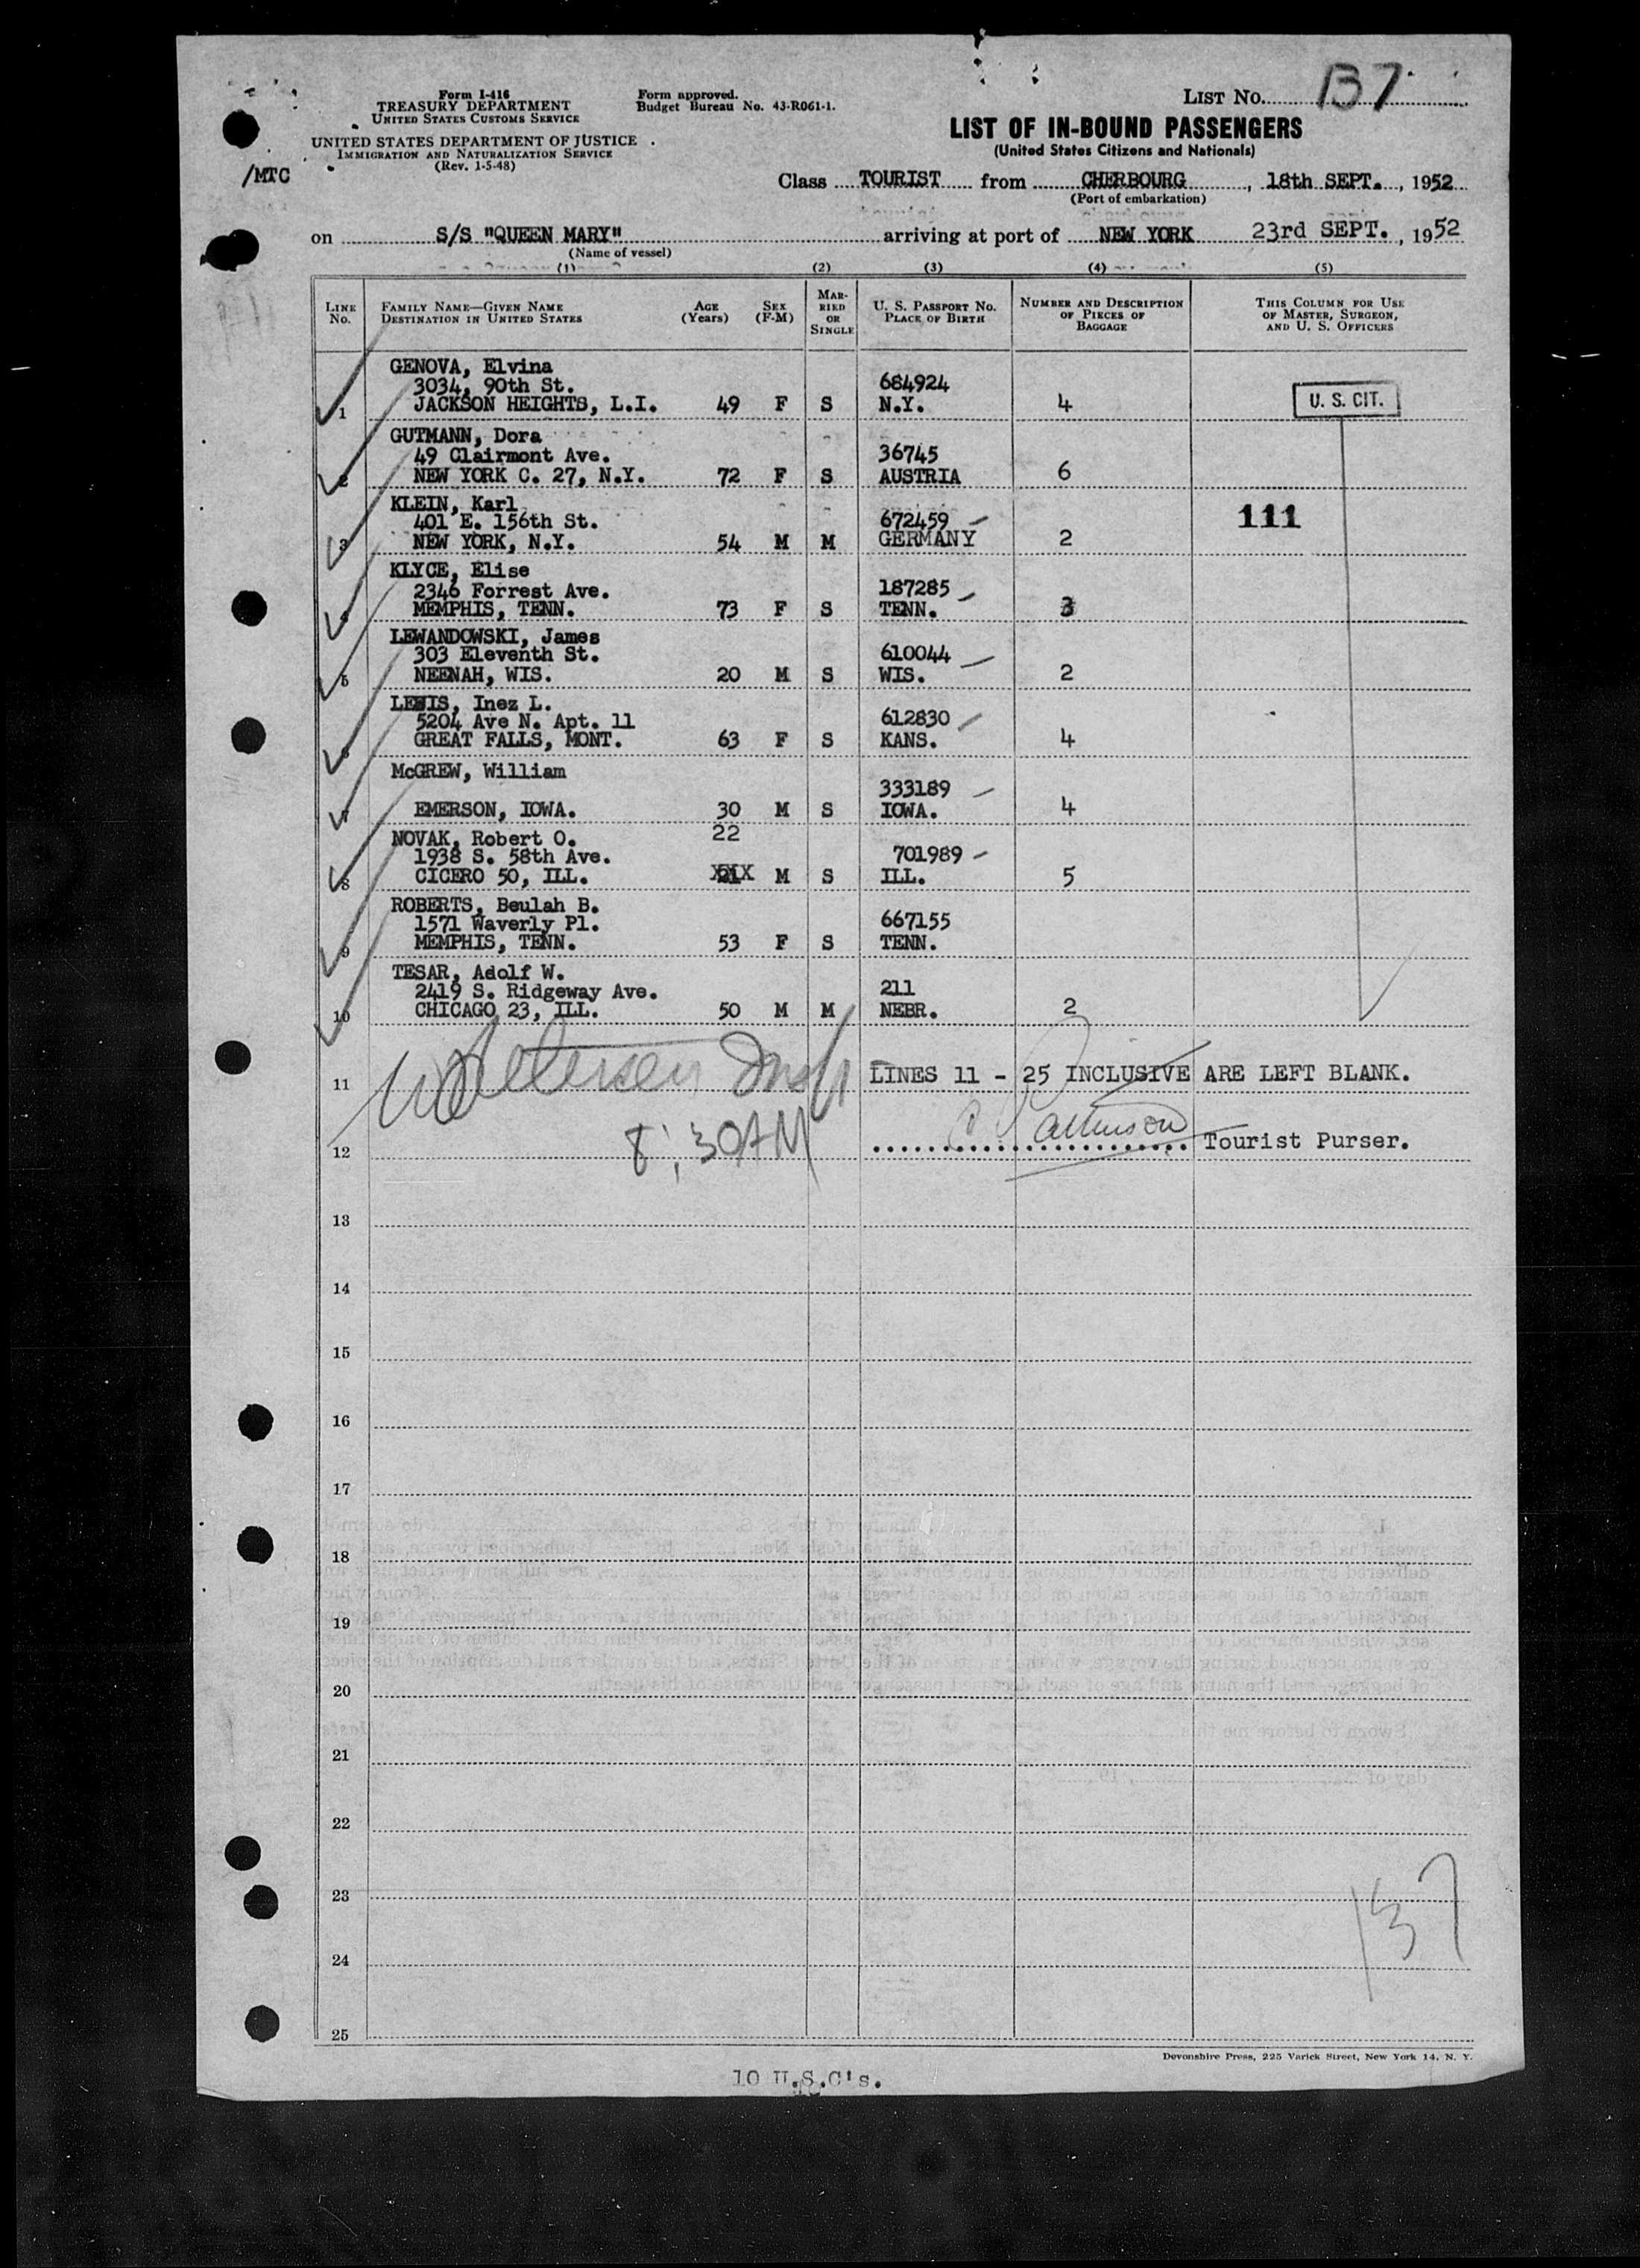 Form I-416
TREASURY DEPARTMENT
UNITED STATES CUSTOMS SERVICE
UNITED STATES DEPARTMENT OF JUSTICE
IMMIGRATION AND NATURALIZATION SERVICE
(Rev. 1-5-48)
/MTC
Form approved.
Budget Bureau No. 43-R061-1.
LIST NO. 137
LIST OF IN-BOUND PASSENGERS
(United States Citizens and Nationals)
Class TOURIST from CHERBOURG, 18th SEPT., 1952
(Port of embarkation)
on S/S "QUEEN MARY" arriving at port of NEW YORK 23rd SEPT., 1952
(Name of vessel)
(1) (2) (3) (4) (5)
LINE NO.
FAMILY NAME—GIVEN NAME
DESTINATION IN UNITED STATES
AGE (Years)
SEX (F-M)
MARRIED OR SINGLE
U. S. PASSPORT NO.
PLACE OF BIRTH
NUMBER AND DESCRIPTION OF PIECES OF BAGGAGE
THIS COLUMN FOR USE OF MASTER, SURGEON, AND U. S. OFFICERS
GENOVA, Elvina
3034, 90th St. 684924
1 JACKSON HEIGHTS, L.I. 49 F S N.Y. 4 U. S. CIT.
GUTMANN, Dora
49 Clairmont Ave. 36745
2 NEW YORK C. 27, N.Y. 72 F S AUSTRIA 6
KLEIN, Karl
401 E. 156th St. 672459 111
3 NEW YORK, N.Y. 54 M M GERMANY 2
KLYCE, Elise
2346 Forrest Ave. 187285
4 MEMPHIS, TENN. 73 F S TENN. 3
LEWANDOWSKI, James
303 Eleventh St. 610044
5 NEENAH, WIS. 20 M S WIS. 2
LEWIS, Inez L.
5204 Ave N. Apt. 11 612830
6 GREAT FALLS, MONT. 63 F S KANS. 4
McGREW, William
333189
7 EMERSON, IOWA. 30 M S IOWA. 4
NOVAK, Robert O. 22
1938 S. 58th Ave. 701989
8 CICERO 50, ILL. M S ILL. 5
ROBERTS, Beulah B.
1571 Waverly Pl. 667155
9 MEMPHIS, TENN. 53 F S TENN.
TESAR, Adolf W.
2419 S. Ridgeway Ave. 211
10 CHICAGO 23, ILL. 50 M M NEBR. 2
11 LINES 11 - 25 INCLUSIVE ARE LEFT BLANK.
12 8:30AM Tourist Purser.
13
14
15
16
17
18
19
20
21
22
23
137
24
25
Devonshire Press, 225 Varick Street, New York 14, N. Y.
10 U.S.C's.